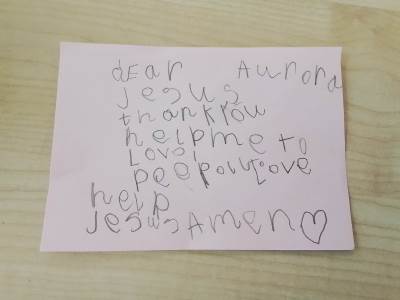 dEar Aurora
jesus
thank You
helpme to
Love
peepol Love
help
jesus AmEn